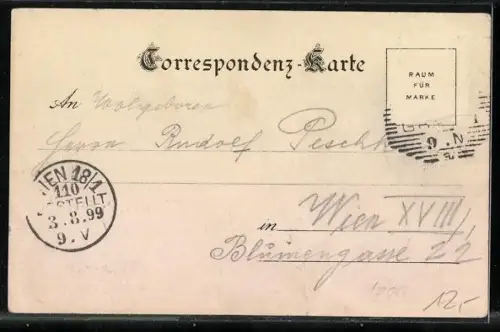 Correspondenz-Karte
RAUM
FÜR
MARKE
An Wohlgeboren
Herrn Rudolf Peschk
9. N
WIEN 18/1
110
BESTELLT
3.8.99
9. V
in Wien XVIII/1
Blumengasse 22
12,-